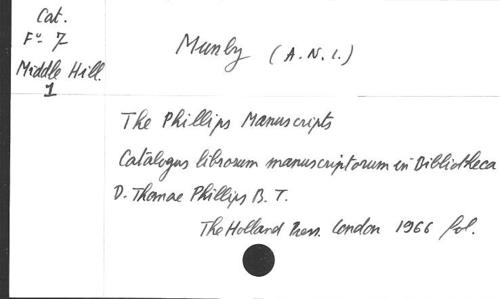 Cat.
Fº 7
Middle Hill.
1
Munby (A.N.L.)
The Phillips Manuscripts
Catalogus librorum manuscriptorum in Bibliotheca
D. Thomae Phillips B. T.
The Holland Press. London 1966 fol.